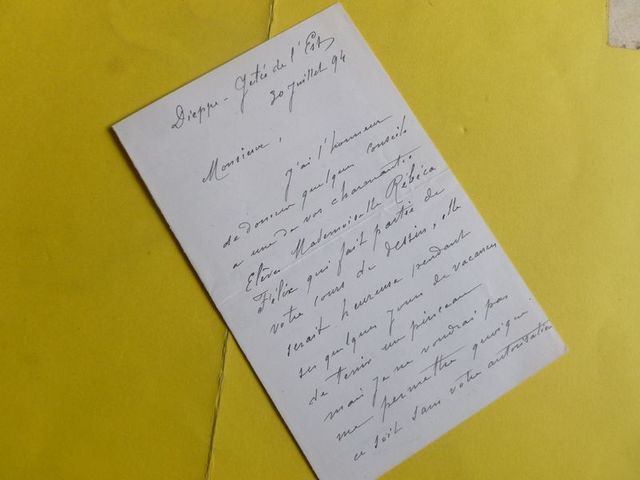 Dieppe - Jetée de l'Est
30 juillet 94
Monsieur,
J'ai l'honneur
de donner quelques conseils
a une de vos charmantes
Elève Mademoiselle Rébéca
Félix qui fait partie de
votre cours de dessin, elle
serait heureuse pendant
ses quelques jours de vacances
de tenir un pinceau
mais je ne voudrai pas
me permettre quoique
ce soit sans votre autorisation